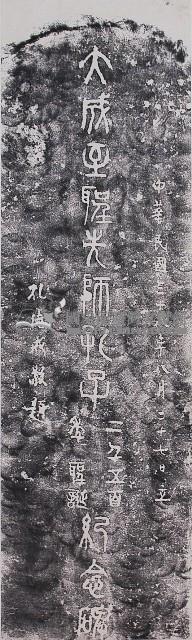 中華民國三十八年八月二十七日立
大成至聖先師孔子二千五百年聖誕紀念碑
孔德成敬題